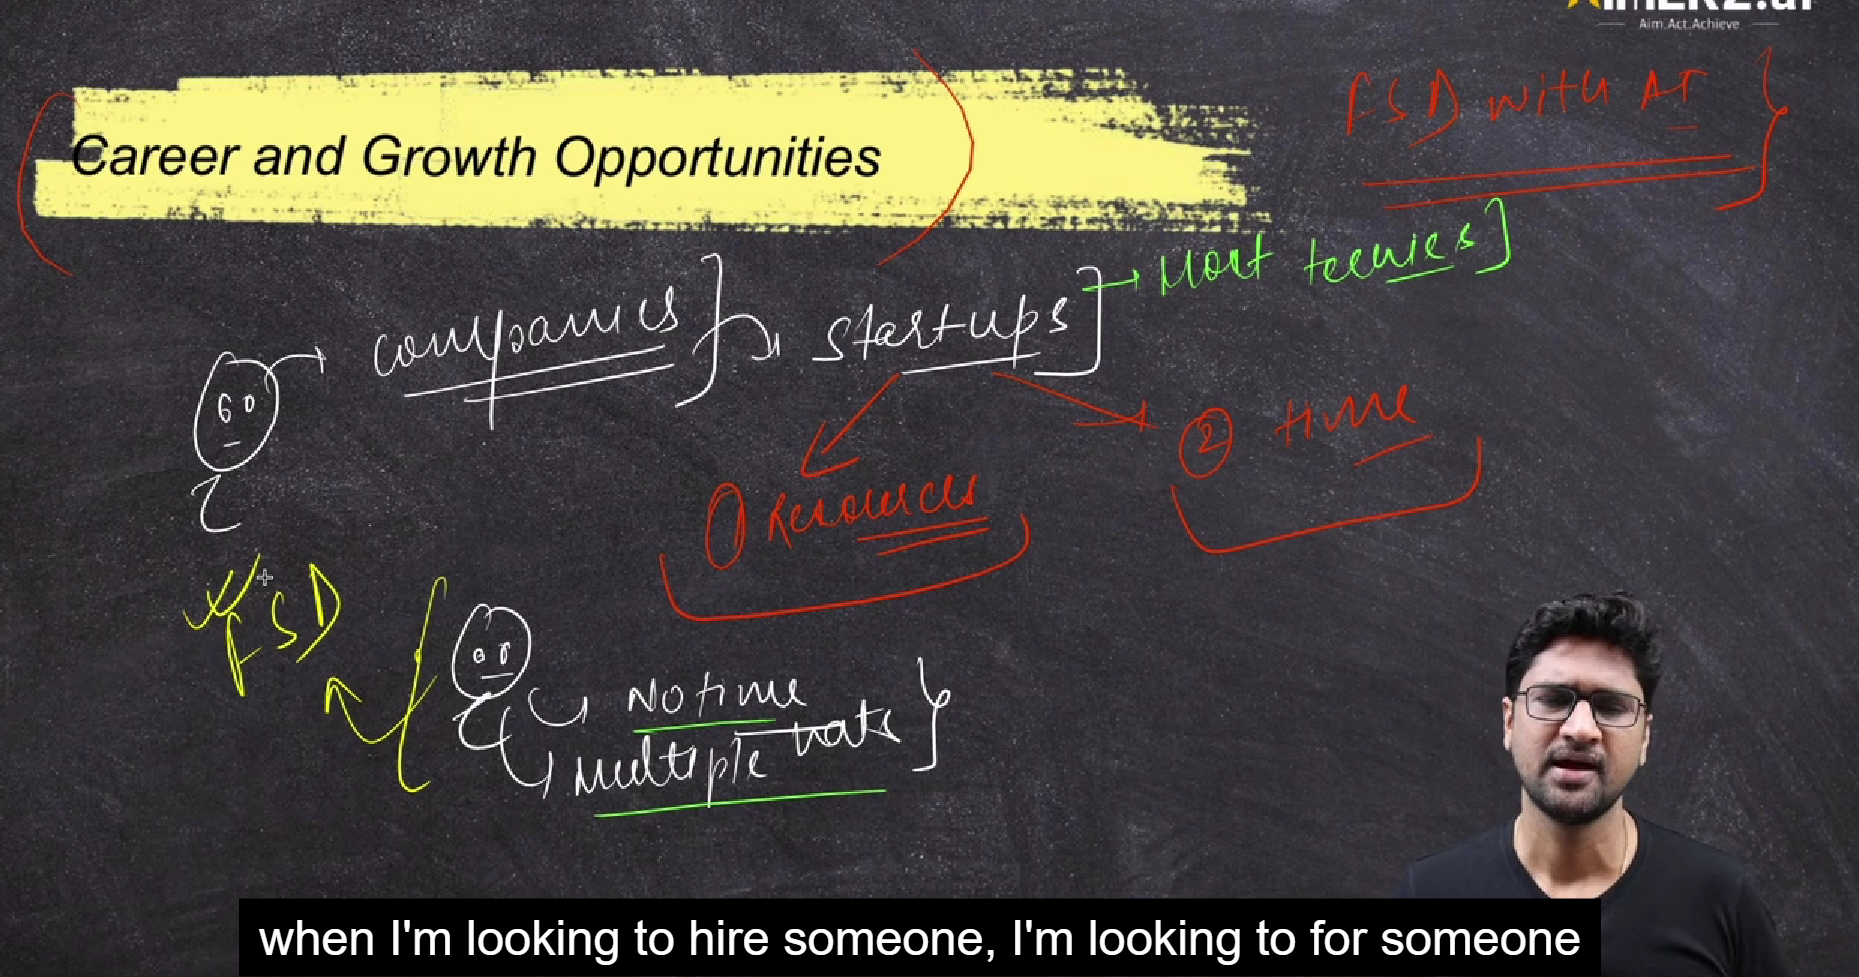 Aim.Act.Achieve
FSD with AI
Career and Growth Opportunities
companies
startups
Most
60
② time
① Resources
FSD
No time
Multiple hats
when I'm looking to hire someone, I'm looking to for someone